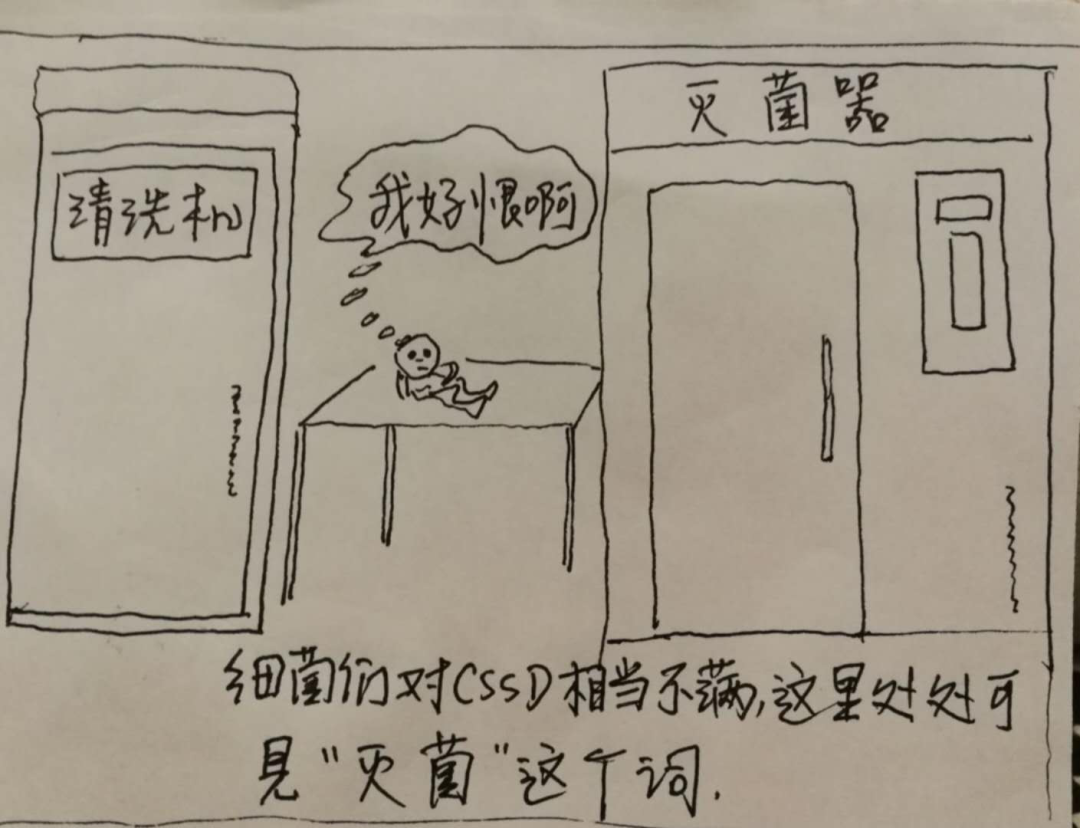 灭菌器
清洗机
我好恨啊
细菌们对CSSD相当不满,这里处处可
见“灭菌”这个词.